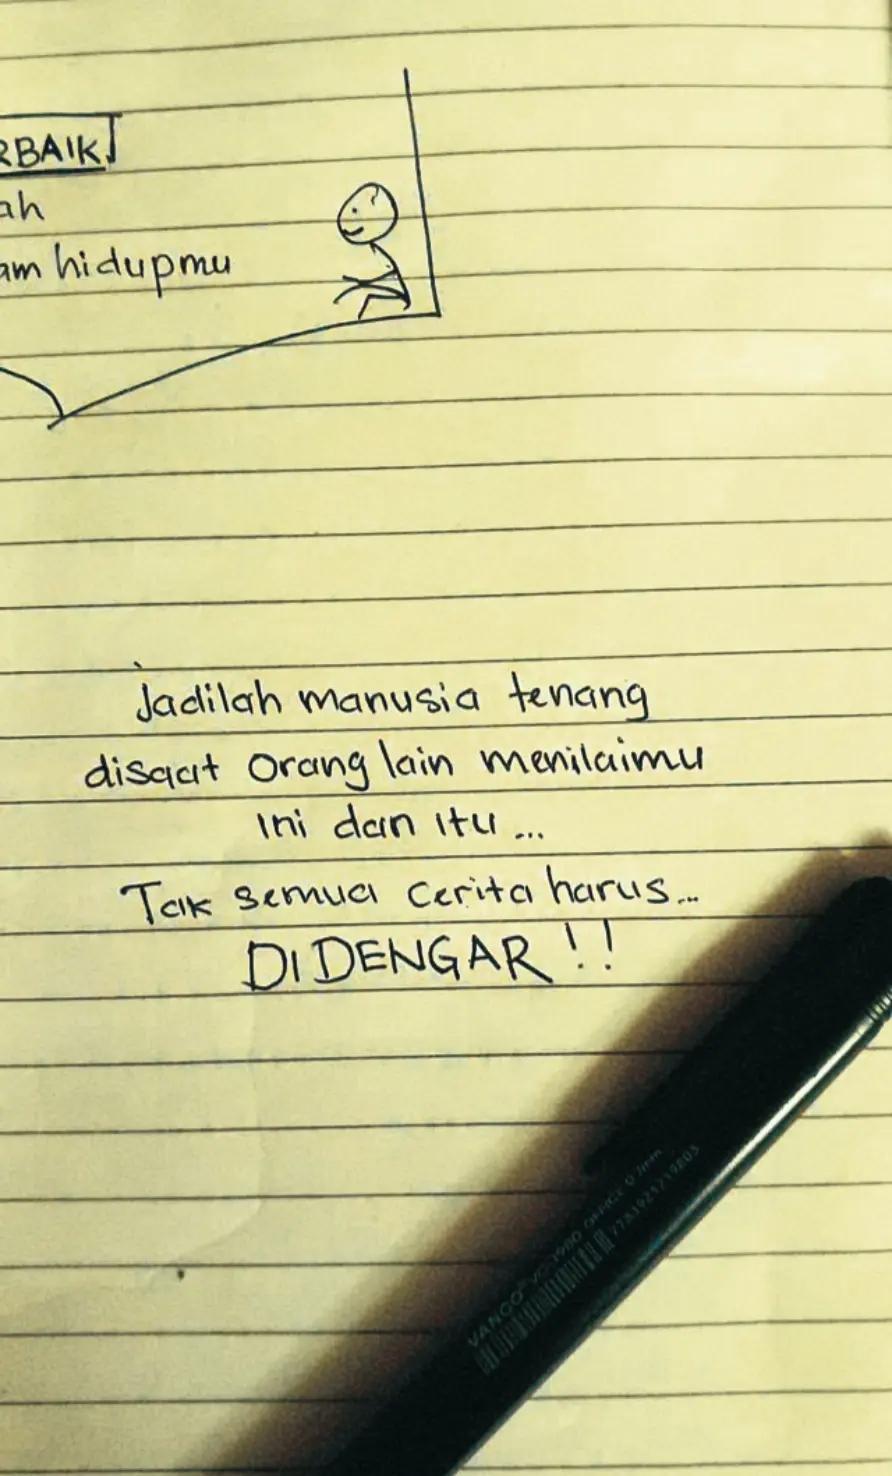 RBAIK
ah
am hidupmu
Jadilah manusia tenang
disaat orang lain menilaimu
ini dan itu ...
Tak semua cerita harus...
DIDENGAR !!
VANCO